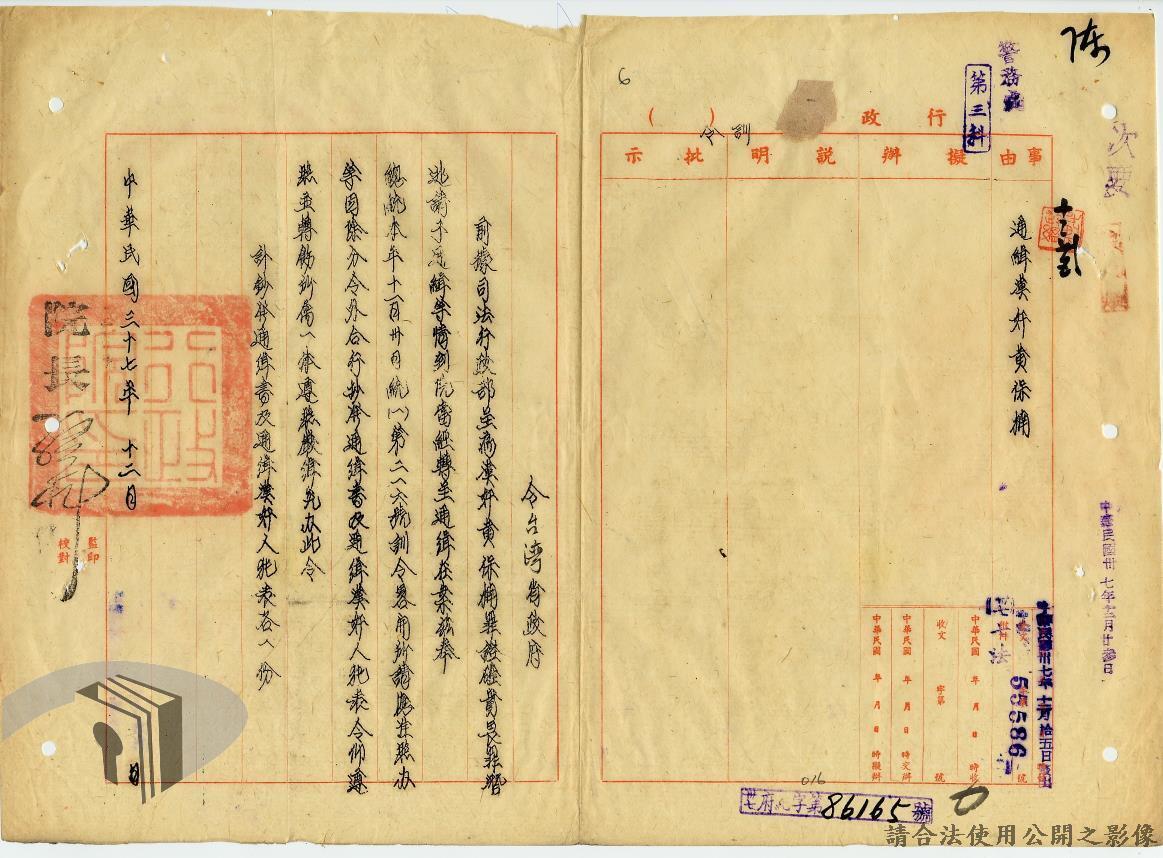 陈
警務處
第三科
6
行政
(　)
訓令
事由
擬辦
說明
批示
通緝漢奸黃保桶
次要
中華民國卅七年十二月廿參日
四十法
55586
中華民國　年　月　日　時收
收文　字第　號
中華民國　年　月　日　時交辦
中華民國　年　月　日　時擬辦
016
府　字第86165號
令台灣省政府
前據司法行政部呈為漢奸黃保桶罪證
逃請予通緝等情到院當經轉呈通緝在案茲奉
總統本年十一月卅日統(一)第二八六號訓令畧開所請應准照办
等因除分令外合行抄發通緝書及通緝漢奸人犯表令仰遵
照並轉飭所屬一体遵照嚴緝究办此令
計鈔發通緝書及通緝漢奸人犯表各一份
中華民國三十七年十二月　日
院長
監印
校對
請合法使用公開之影像